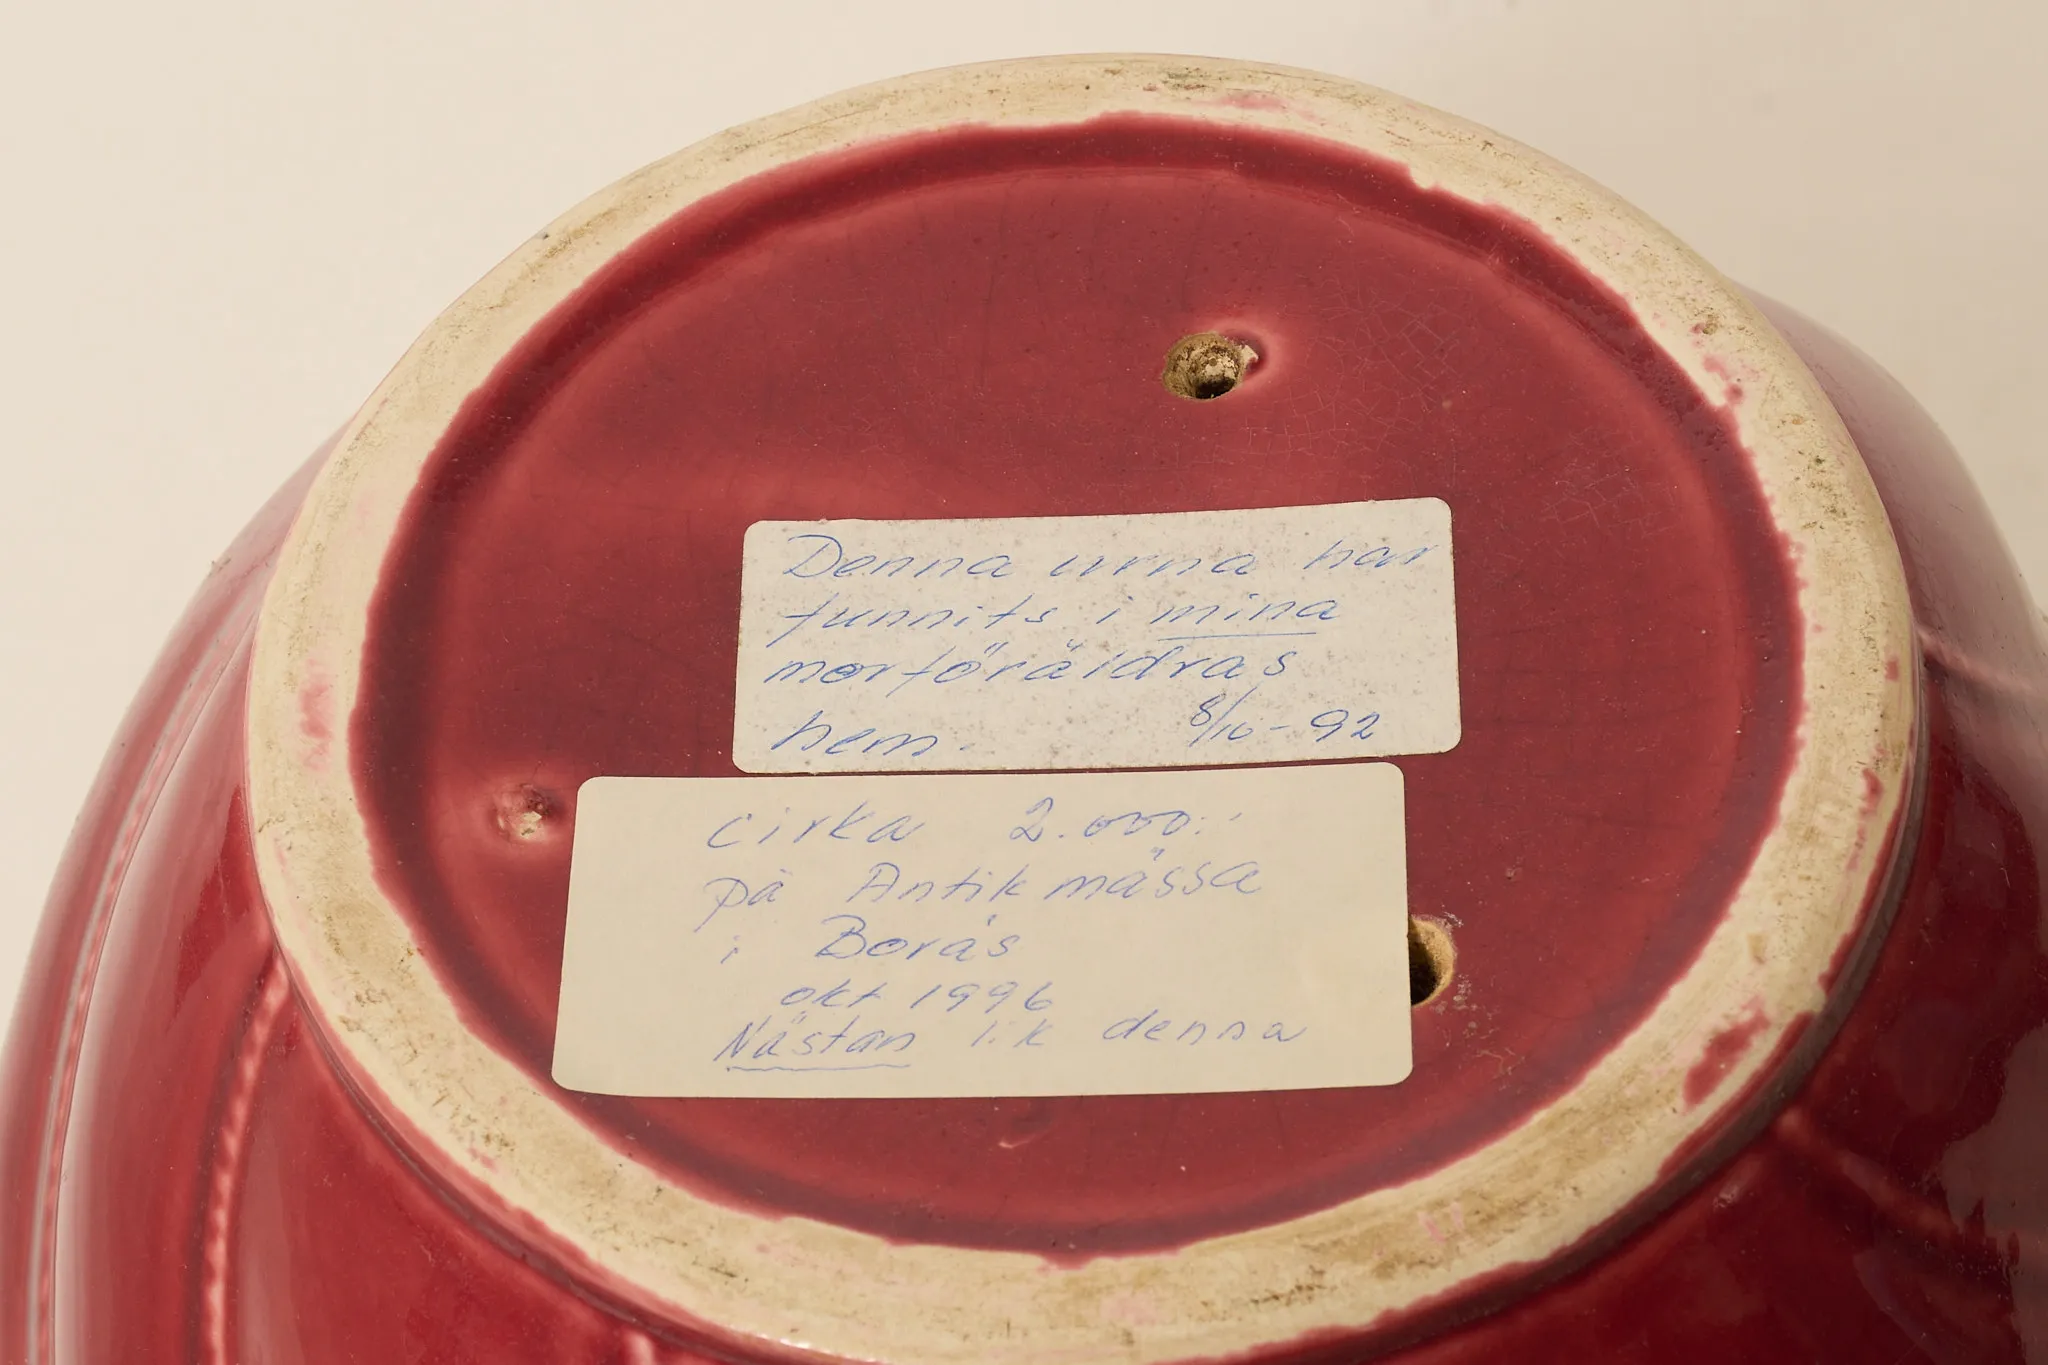 Denna urna har
funnits i mina
morföräldras
hem. 8/10-92
cirka 2.000:-
på Antikmässa
i Borås
okt 1996
Nästan lik denna